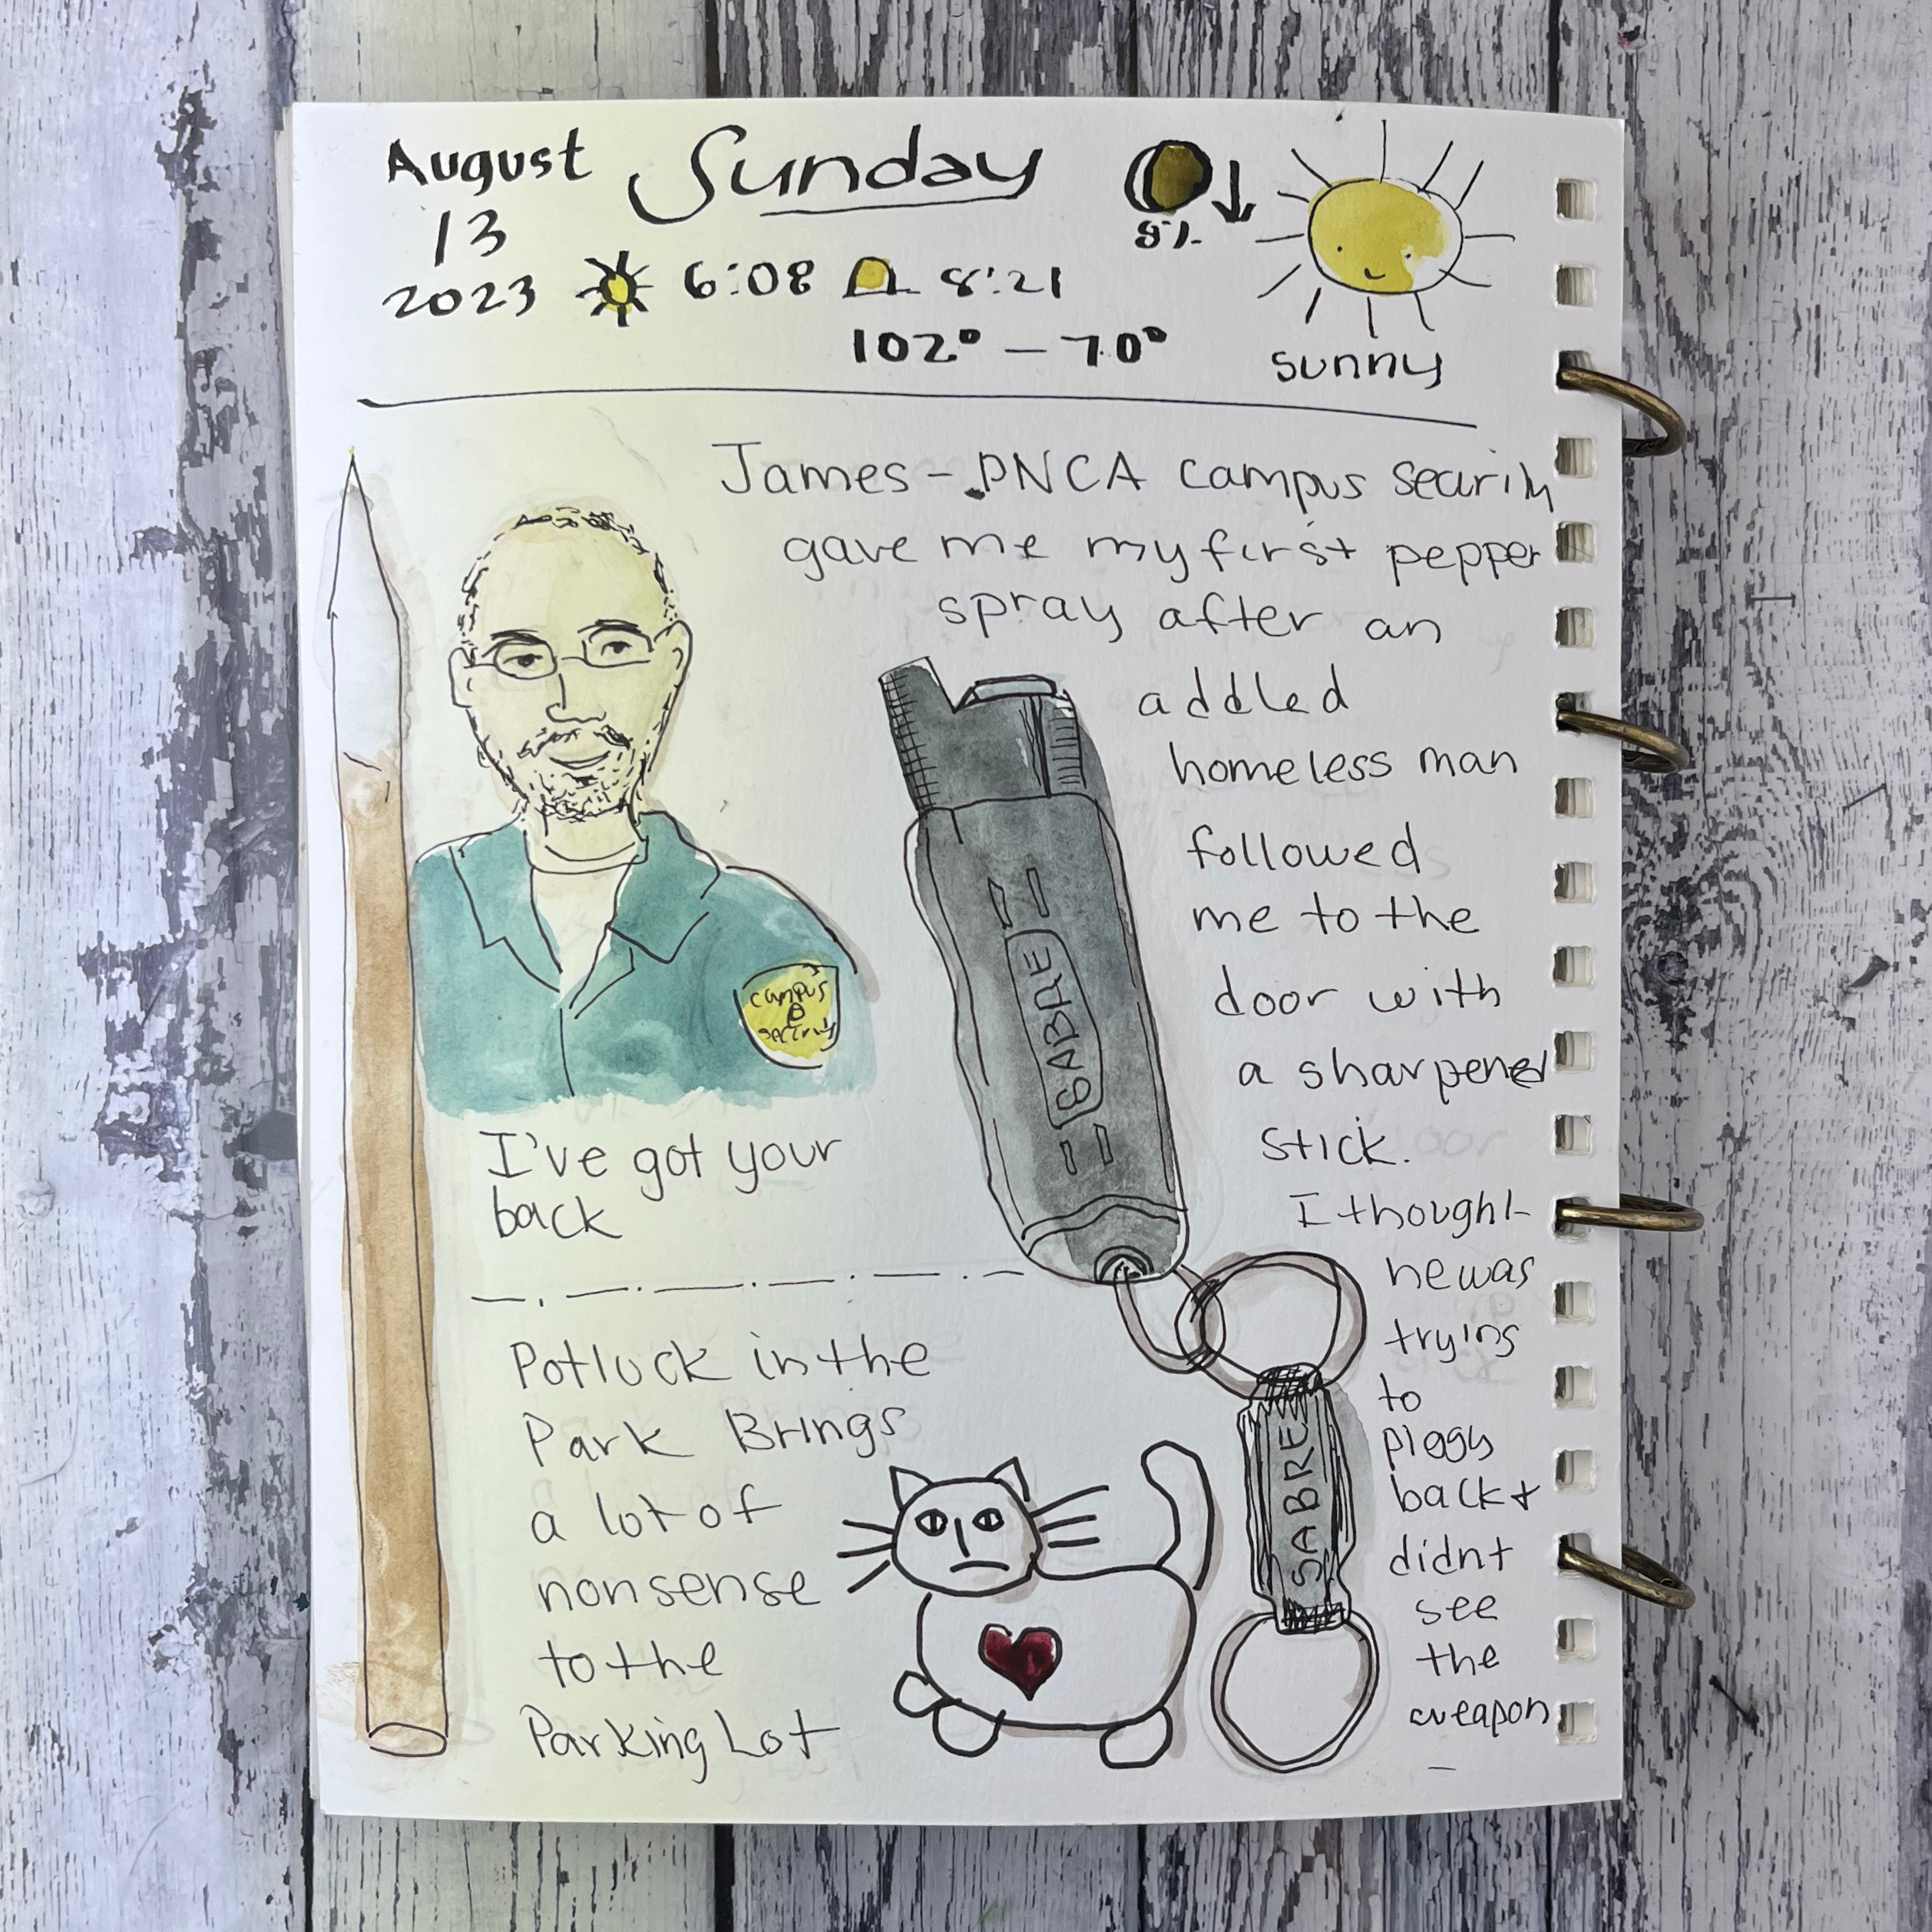 August Sunday
13
2023 6:08 8:21
8%
102° – 70°
sunny
James - PNCA campus security
gave me my first pepper
spray after an
addled
homeless man
followed
me to the
door with
a sharpened
stick.
I thought
he was
trying
to
piggy
back &
didnt
see
the
weapon
campus
security
I've got your
back
SABRE
SABRE
Potluck in the
Park Brings
a lot of
nonsense
to the
Parking Lot